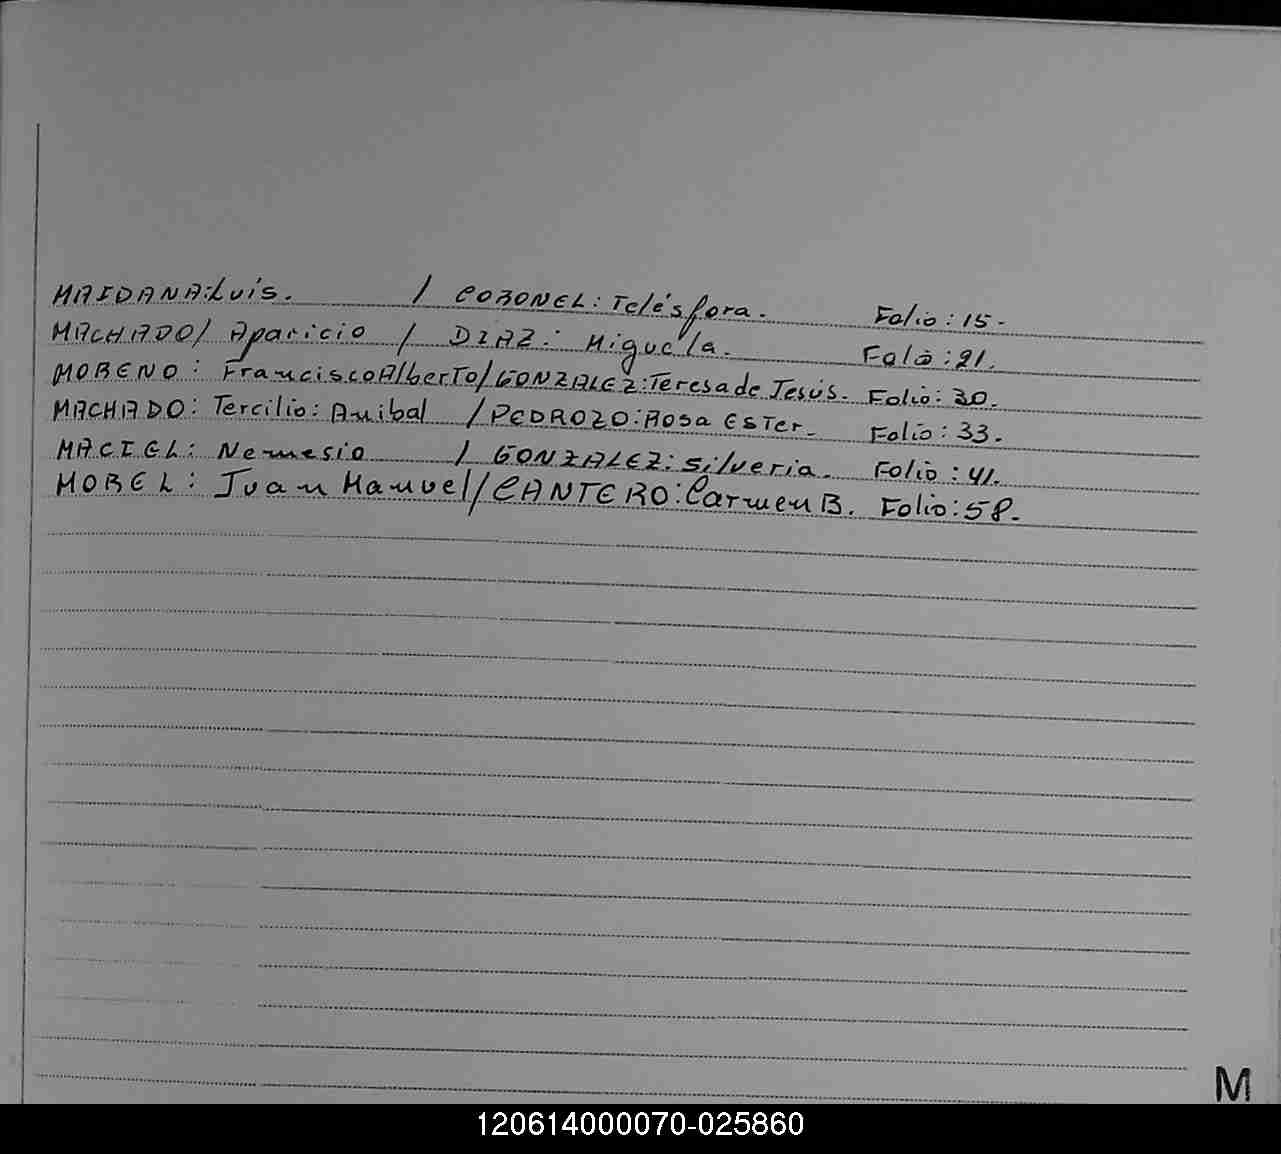 MAIDANA: Luis. / CORONEL: Telésfora. Folio: 15-
MACHADO/ Aparicio / DIAZ: Miguela. Folio: 21.
MORENO: Francisco Alberto/GONZALEZ: Teresa de Jesús. Folio: 30.
MACHADO: Tercilio: Anibal / PEDROZO: Rosa Ester. Folio: 33.
MACIEL: Nemesio / GONZALEZ: Silveria. Folio: 41.
MOREL: Juan Manuel/CANTERO: Carmen B. Folio: 58.
M
120614000070-025860